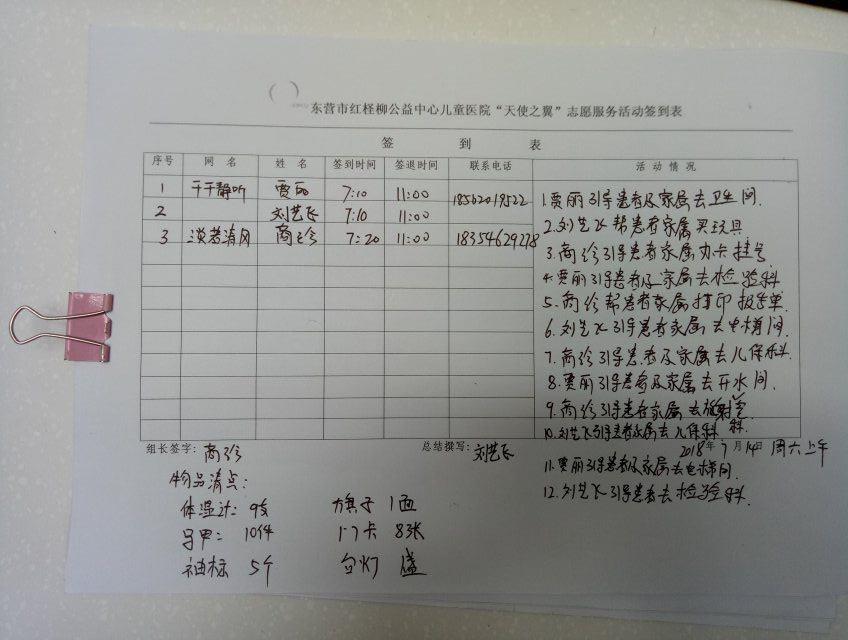 ( )
东营市红柽柳公益中心儿童医院“天使之翼”志愿服务活动签到表
签 到 表
序号 网 名 姓 名 签到时间 签退时间 联系电话 活 动 情 况
1 干干静听 贾丽 7:10 11:00 18562019522
2 刘艺飞 7:10 11:00
3 淡若清风 商珍 7:20 11:00 18354629278
1.贾丽引导患者及家属去卫生间.
2.刘艺飞帮患者家属买玩具
3.商珍引导患者家属办卡挂号
4.贾丽引导患者及家属去检验科
5.商珍帮患者家属打印报告单.
6.刘艺飞引导患者家属去电梯间.
7.商珍引导患者及家属去儿保科.
8.贾丽引导患者及家属去开水间.
9.商珍引导患者家属去放射科.
10.刘艺飞引导患者家属去儿保科
组长签字: 商珍 总结撰写: 刘艺飞 2018年7月14日 周六上午
11.贾丽引导患者及家属去电梯间.
12.刘艺飞引导患者去检验科.
物品清点:
体温计: 9支 旗子 1面
马甲: 10件 门卡 83张
袖标 5个 台灯